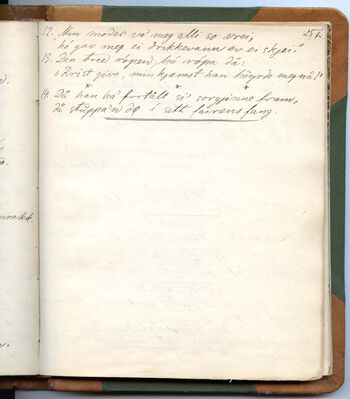 251.
12. Min moder vá meg alli so vrei,
hó gav meg ei drikkevann ev ei skjei.
13. Den tree ropen, hó ropa dá:
o Krist give, min kjærast han höyrde meg
* * *
14. Dá han há fortált ei sorgjinne fram,
dá stuppa'n dö i sitt fáirens fang.
prakk.